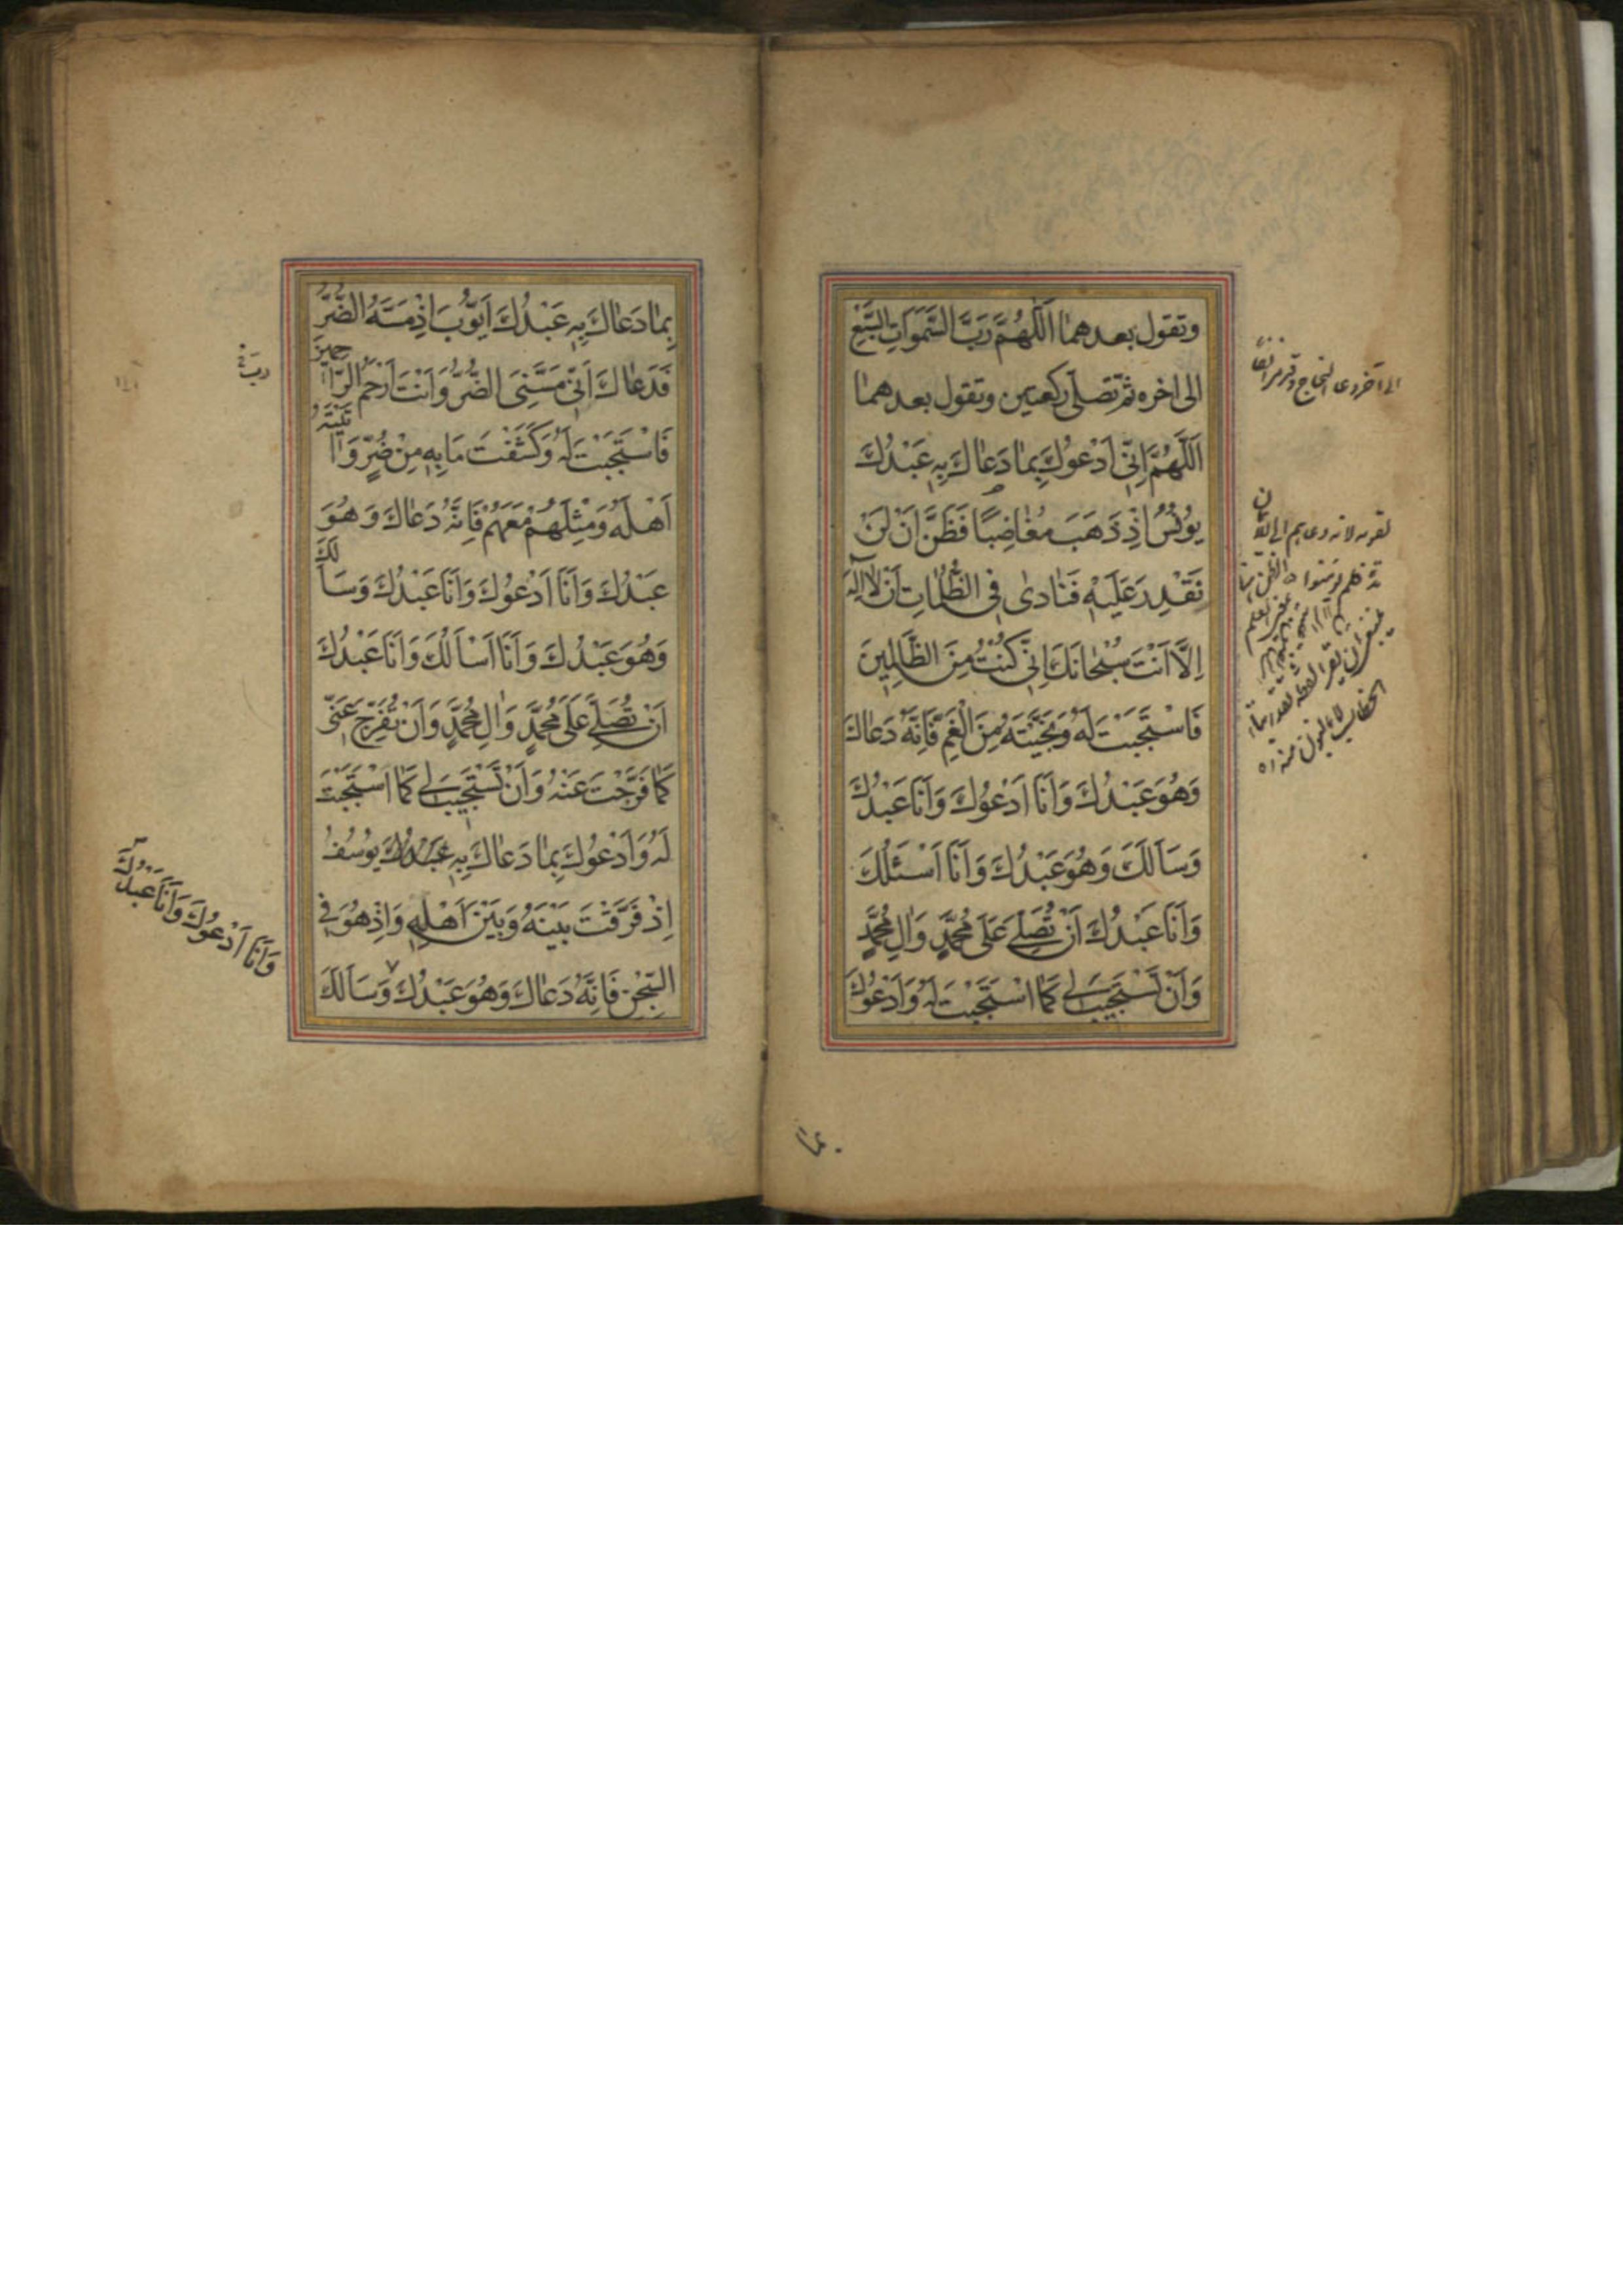 وتقول بعدهما اَللّٰهُمَّ رَبَّ السَّمٰوَاتِ السَّبْعِ
الى اخره ثمّ تصلّى ركعتين وتقول بعدهما
اَللّٰهُمَّ اِنّى اَدْعُوكَ بِمٰا دَعٰاكَ بِهِ عَبْدُكَ
يُونُسُ اِذْ ذَهَبَ مُغٰاضِبًا فَظَنَّ اَنْ لَنْ
نَقْدِرَ عَلَيْهِ فَنٰادىٰ فِى الظُّلُمٰاتِ اَنْ لٰا اِلٰهَ
اِلَّا اَنْتَ سُبْحٰانَكَ اِنّى كُنْتُ مِنَ الظّٰالِمِينَ
فَاسْتَجَبْتَ لَهُ وَنَجَّيْتَهُ مِنَ الْغَمِّ فَاِنَّهُ دَعٰاكَ
وَهُوَ عَبْدُكَ وَاَنَا اَدْعُوكَ وَاَنَا عَبْدُكَ
وَسَاَلَكَ وَهُوَ عَبْدُكَ وَاَنَا اَسْئَلُكَ
وَاَنَا عَبْدُكَ اَنْ تُصَلِّىَ عَلىٰ مُحَمَّدٍ وَاٰلِ مُحَمَّدٍ
وَاَنْ تَسْتَجيبَ لى كَمَا اسْتَجَبْتَ لَهُ وَاَدْعُوكَ
الى آخر دعا النجاح
بِمٰا دَعٰاكَ بِهِ عَبْدُكَ اَيُّوبَ اِذْ مَسَّهُ الضُّرُّ
فَدَعٰاكَ اَنّى مَسَّنِىَ الضُّرُّ وَاَنْتَ اَرْحَمُ الرّٰاحِمينَ
فَاسْتَجَبْتَ لَهُ وَكَشَفْتَ مٰا بِهِ مِنْ ضُرٍّ وَاٰتَيْتَهُ
اَهْلَهُ وَمِثْلَهُمْ مَعَهُمْ فَاِنَّهُ دَعٰاكَ وَهُوَ
عَبْدُكَ وَاَنَا اَدْعُوكَ وَاَنَا عَبْدُكَ وَسَاَلَكَ
وَهُوَ عَبْدُكَ وَاَنَا اَسْاَلُكَ وَاَنَا عَبْدُكَ
اَنْ تُصَلِّىَ عَلىٰ مُحَمَّدٍ وَاٰلِ مُحَمَّدٍ وَاَنْ تُفَرِّجَ عَنّى
كَمٰا فَرَّجْتَ عَنْهُ وَاَنْ تَسْتَجيبَ لى كَمَا اسْتَجَبْتَ
لَهُ وَاَدْعُوكَ بِمٰا دَعٰاكَ بِهِ عَبْدُكَ يُوسُفُ
اِذْ فَرَّقْتَ بَيْنَهُ وَبَيْنَ اَهْلِهِ وَاِذْ هُوَ فِى
السِّجْنِ فَاِنَّهُ دَعٰاكَ وَهُوَ عَبْدُكَ وَسَاَلَكَ
وَاَنَا اَدْعُوكَ وَاَنَا عَبْدُكَ